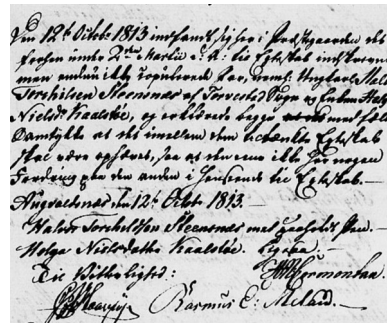 Den 12te Octobr 1813 indfandt sig her i Præstegaarden det
forhen under 2den Martii d: A: til Egteskab indskrevne
men endnu ikke copulerede Par, navnl: Ungkarl Halvor
Torchilsen Steensnes af Torvestad Sogn og Enken Helga
Nielsd: Kaalstøe, og erklærede begge med fælles
Samtykke at det imellem dem betænkte Egteskab
skal være ophævet, saa at den eene ikke har nogen
Fordring paa den anden i Henseende til Egteskab.-
Augvaldsnes den 12te Octobr 1813.-
Halvor Torchelsen Steensnes med paaholdt Pen.-
Helga Nielsdatter Kaalstøe. ligesaa.-
Til Vitterlighed:
Rasmus E: Meland.